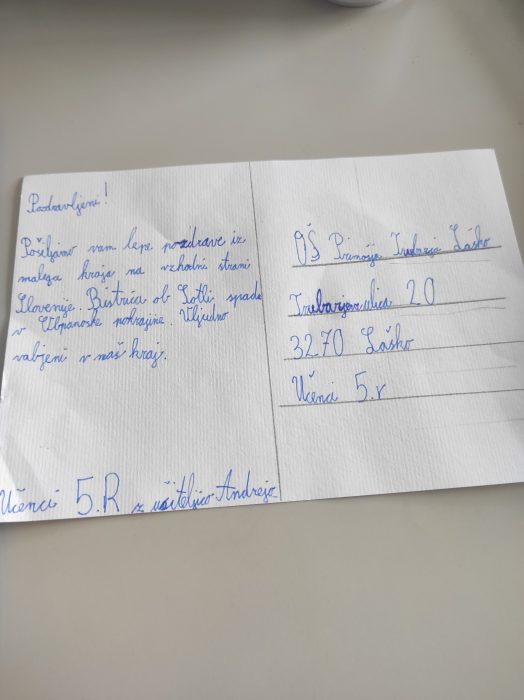 Pozdravljeni!
Pošiljamo vam lepe pozdrave iz
malega kraja na vzhodni strani
Slovenije. Bistrica ob Sotli spada
v pokrajine. Vljudno
vabljeni v naš kraj.
Učenci 5.R z učiteljico Andrejo
OŠ Primoža Trubarja Laško
Trubarjeva ulica 20
3270 Laško
Učenci 5.r